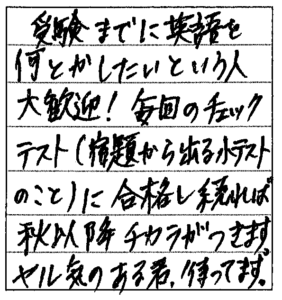 受験までに英語を
何とかしたいという人
大歓迎！毎回のチェック
テスト(宿題から出る小テスト
のこと)に合格し続ければ
秋以降チカラがつきます。
ヤル気のある君、待ってます。